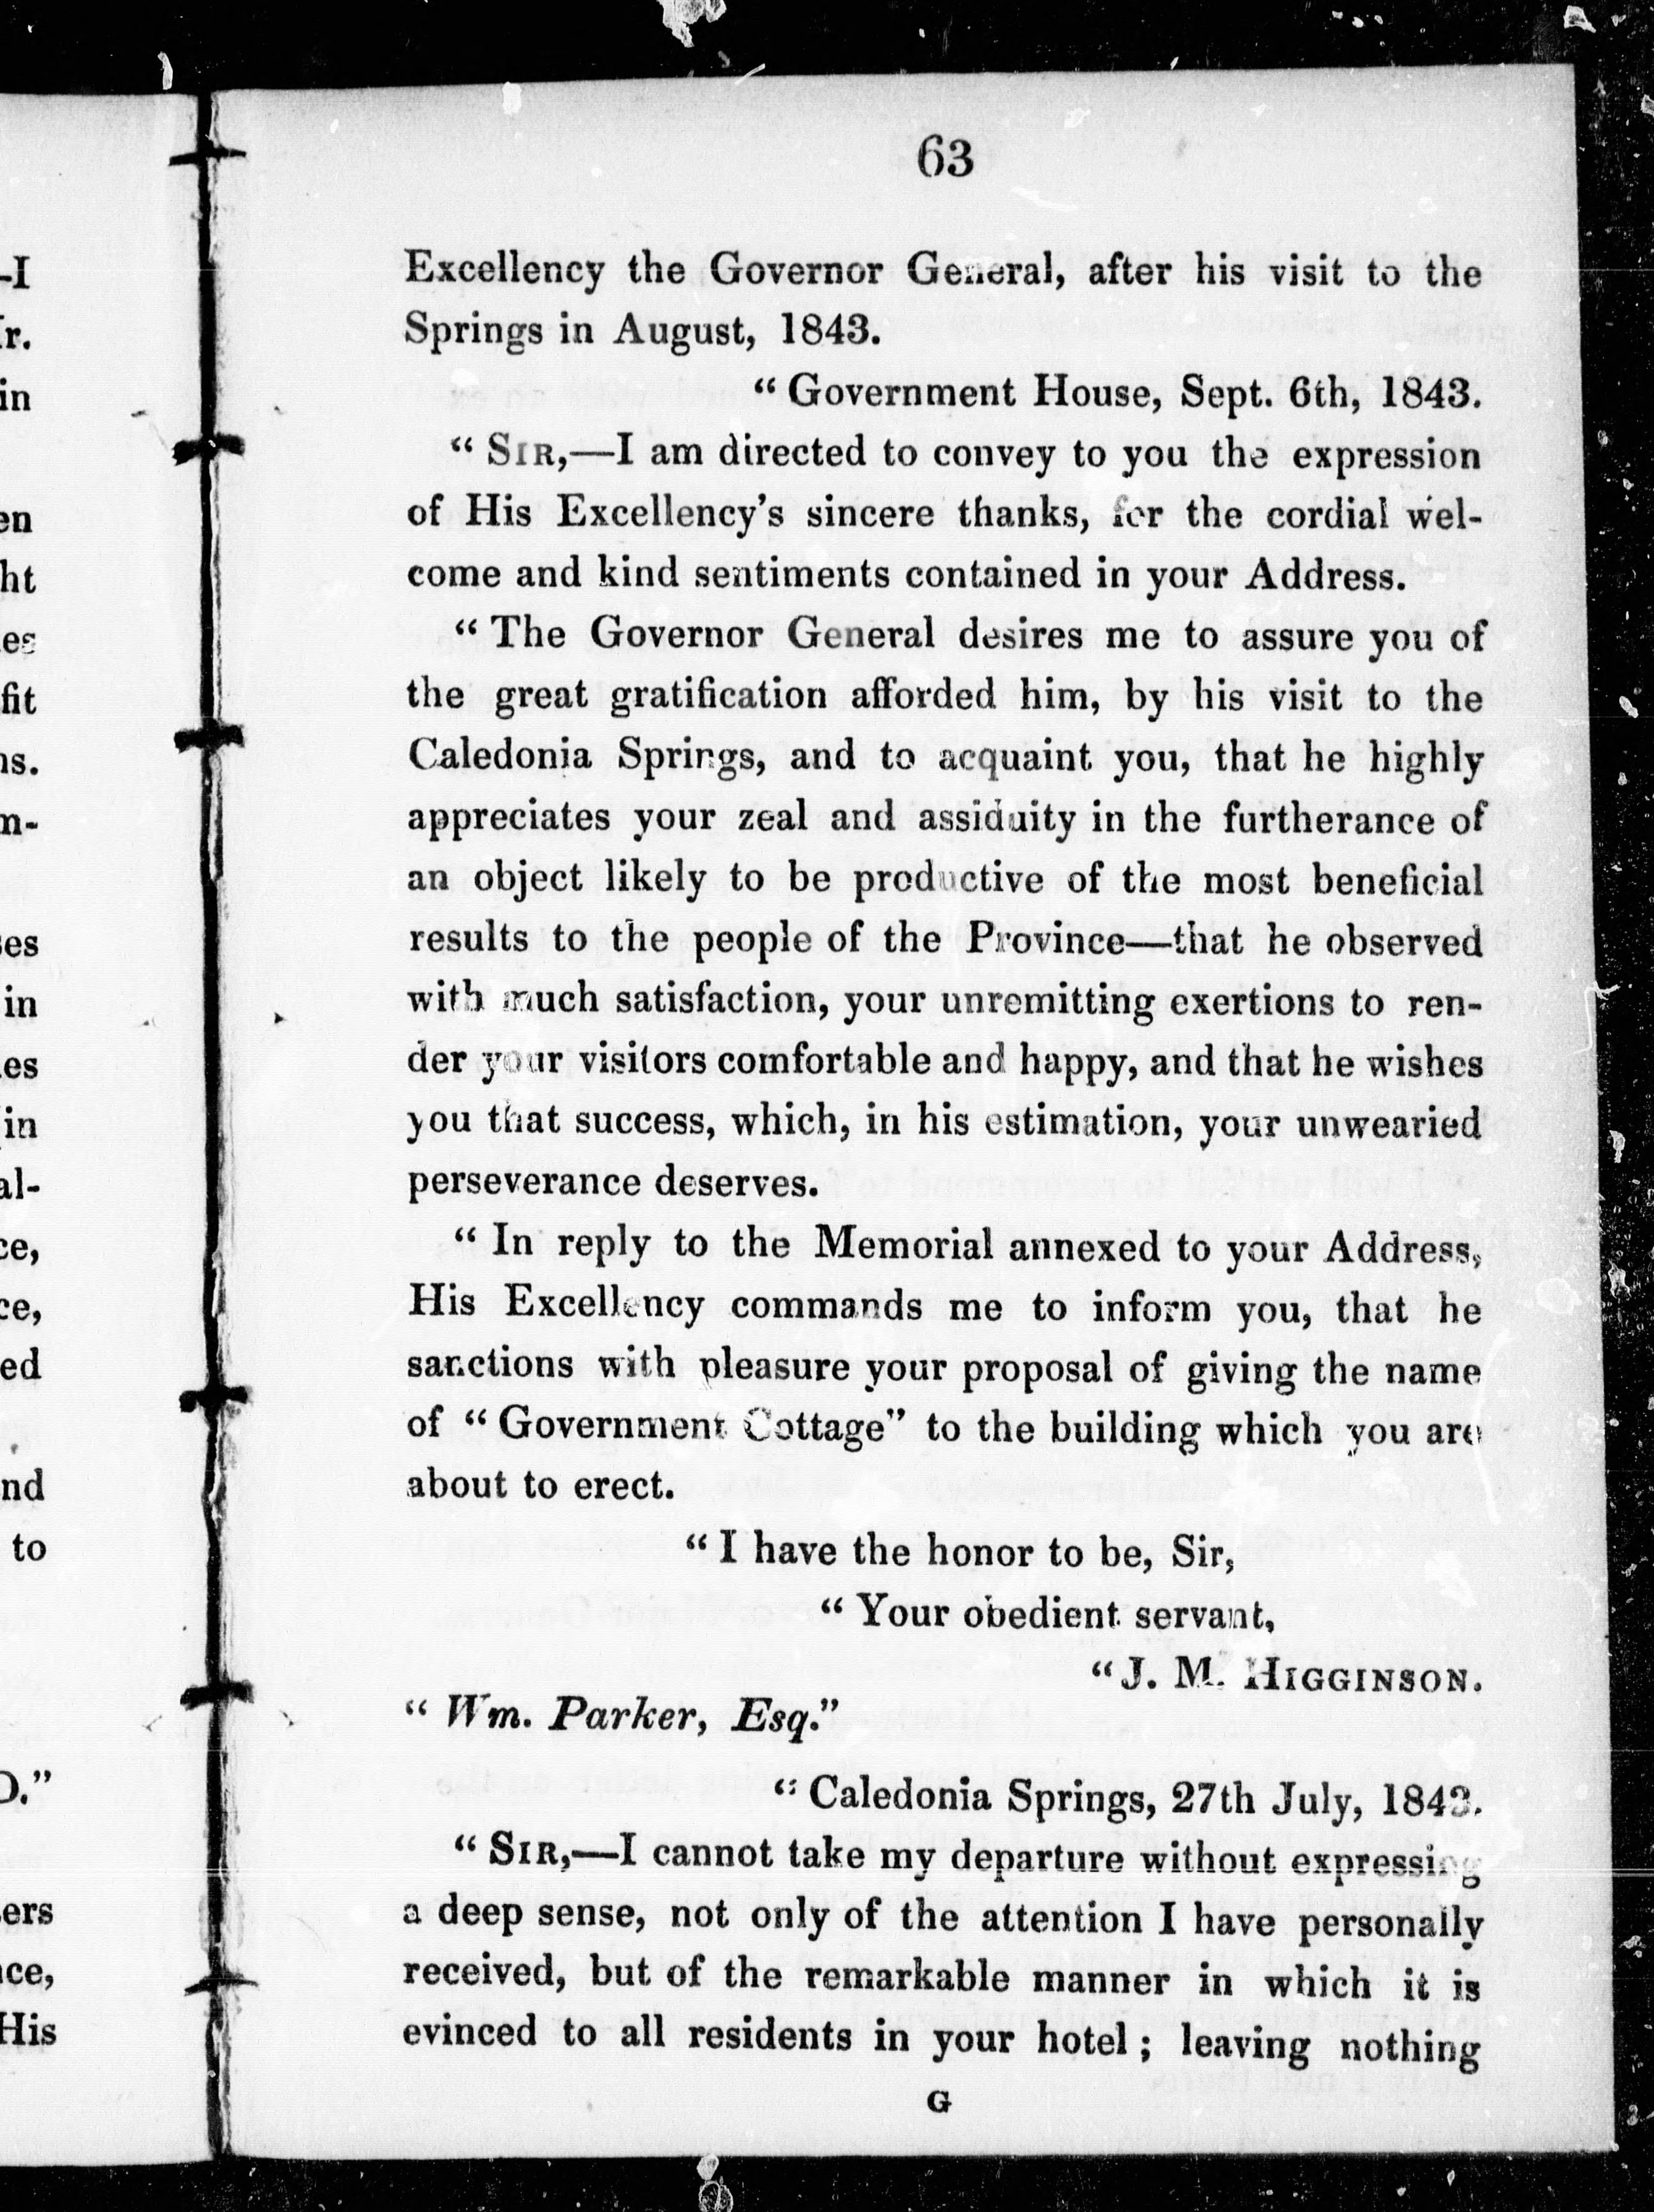 63
Excellency the Governor General, after his visit to the
Springs in August, 1843.
“ Government House, Sept. 6th, 1843.
“ SIR,—I am directed to convey to you the expression
of His Excellency’s sincere thanks, for the cordial wel-
come and kind sentiments contained in your Address.
“ The Governor General desires me to assure you of
the great gratification afforded him, by his visit to the
Caledonia Springs, and to acquaint you, that he highly
appreciates your zeal and assiduity in the furtherance of
an object likely to be productive of the most beneficial
results to the people of the Province—that he observed
with much satisfaction, your unremitting exertions to ren-
der your visitors comfortable and happy, and that he wishes
you that success, which, in his estimation, your unwearied
perseverance deserves.
“ In reply to the Memorial annexed to your Address,
His Excellency commands me to inform you, that he
sanctions with pleasure your proposal of giving the name
of “ Government Cottage” to the building which you are
about to erect.
“ I have the honor to be, Sir,
“ Your obedient servant,
“ J. M. HIGGINSON.
“ Wm. Parker, Esq.”
“ Caledonia Springs, 27th July, 1843.
“ SIR,—I cannot take my departure without expressing
a deep sense, not only of the attention I have personally
received, but of the remarkable manner in which it is
evinced to all residents in your hotel ; leaving nothing
G